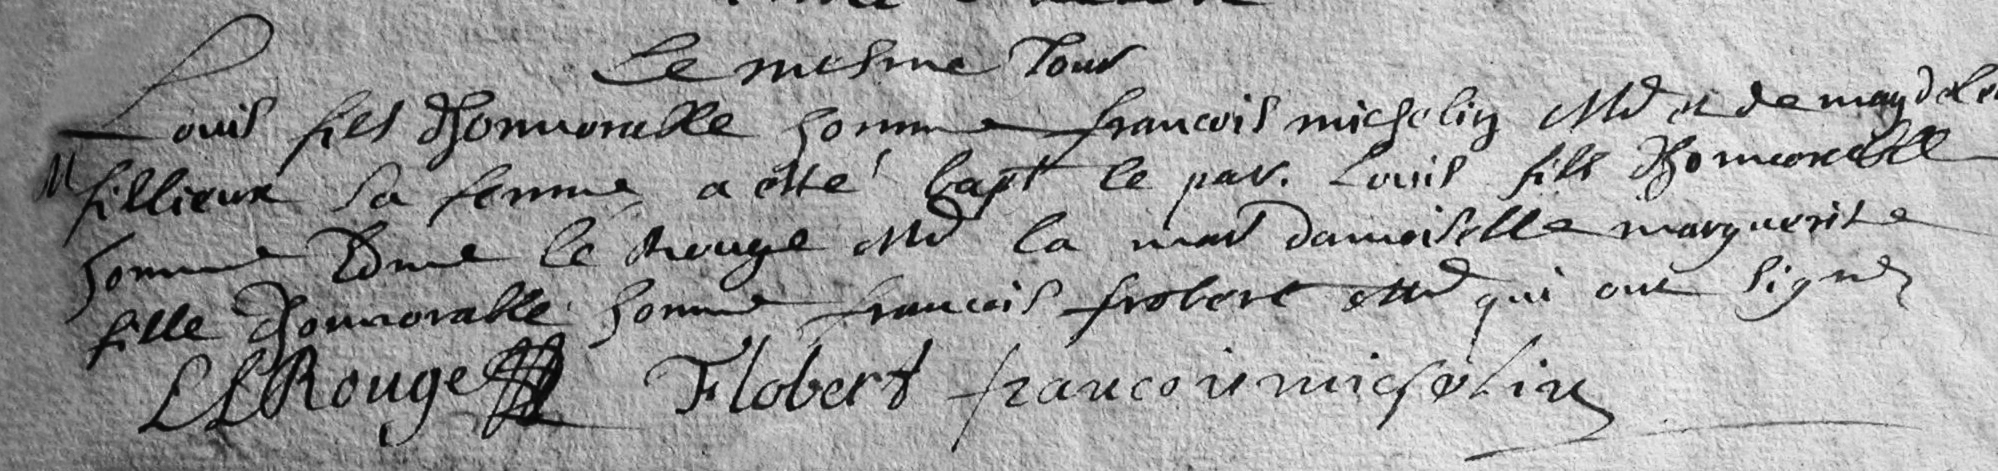 Le mesme Jour
Louis fils dhonnorable homme francois michelin Md et de magdele
M
fillieux sa femme a esté bapt le par. Louis fils dhonnorable
homme Edme le Rouge Md la mar damoiselle marguerite
fille dhonnorable homme francois frobert Md qui ont signé
L LeRouge Flobert francois michelin